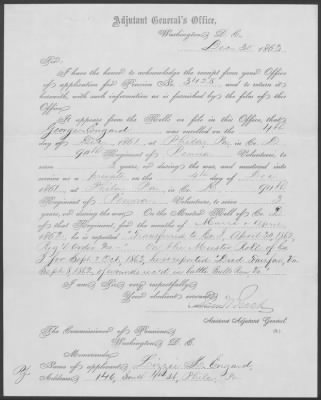 Adjutant General's Office,
Washington, D. C.
Dec 30, 1862
Sir:
I have the honor to acknowledge the receipt from your Office
of application for Pension No. 3425, and to return it
herewith, with such information as is furnished by the files of this
Office.
It appears from the Rolls on file in this Office, that
George Engard was enrolled on the 4th
day of Dec, 1861, at Philad. Pa, in Co. D,
90th Regiment of Penna Volunteers, to
serve 3 years, or during the war, and mustered into
service as a private on the 4th day of Dec
1861, at Phila. Pa, in Co. D, 90th
Regiment of Penna Volunteers, to serve 3
years, or during the war. On the Muster Roll of Co. D
of that Regiment, for the months of March & April
1862, he is reported "Transferred to Co. I, April 20, 1862
Reg'l Order No." On the Muster Roll of Co.
I for Sept & Oct, 1862, he is reported "Died Fairfax, Va
Sept. 8, 1862, of wounds rec'd in battle Bull Run, Va."
I am, Sir, very respectfully,
Your obedient servant,
Assistant Adjutant General
The Commissioner of Pensions,
Washington, D. C.
Memoranda:
Name of applicant, Lizzie Engard
Address, 146, South 4th St, Phila, Pa